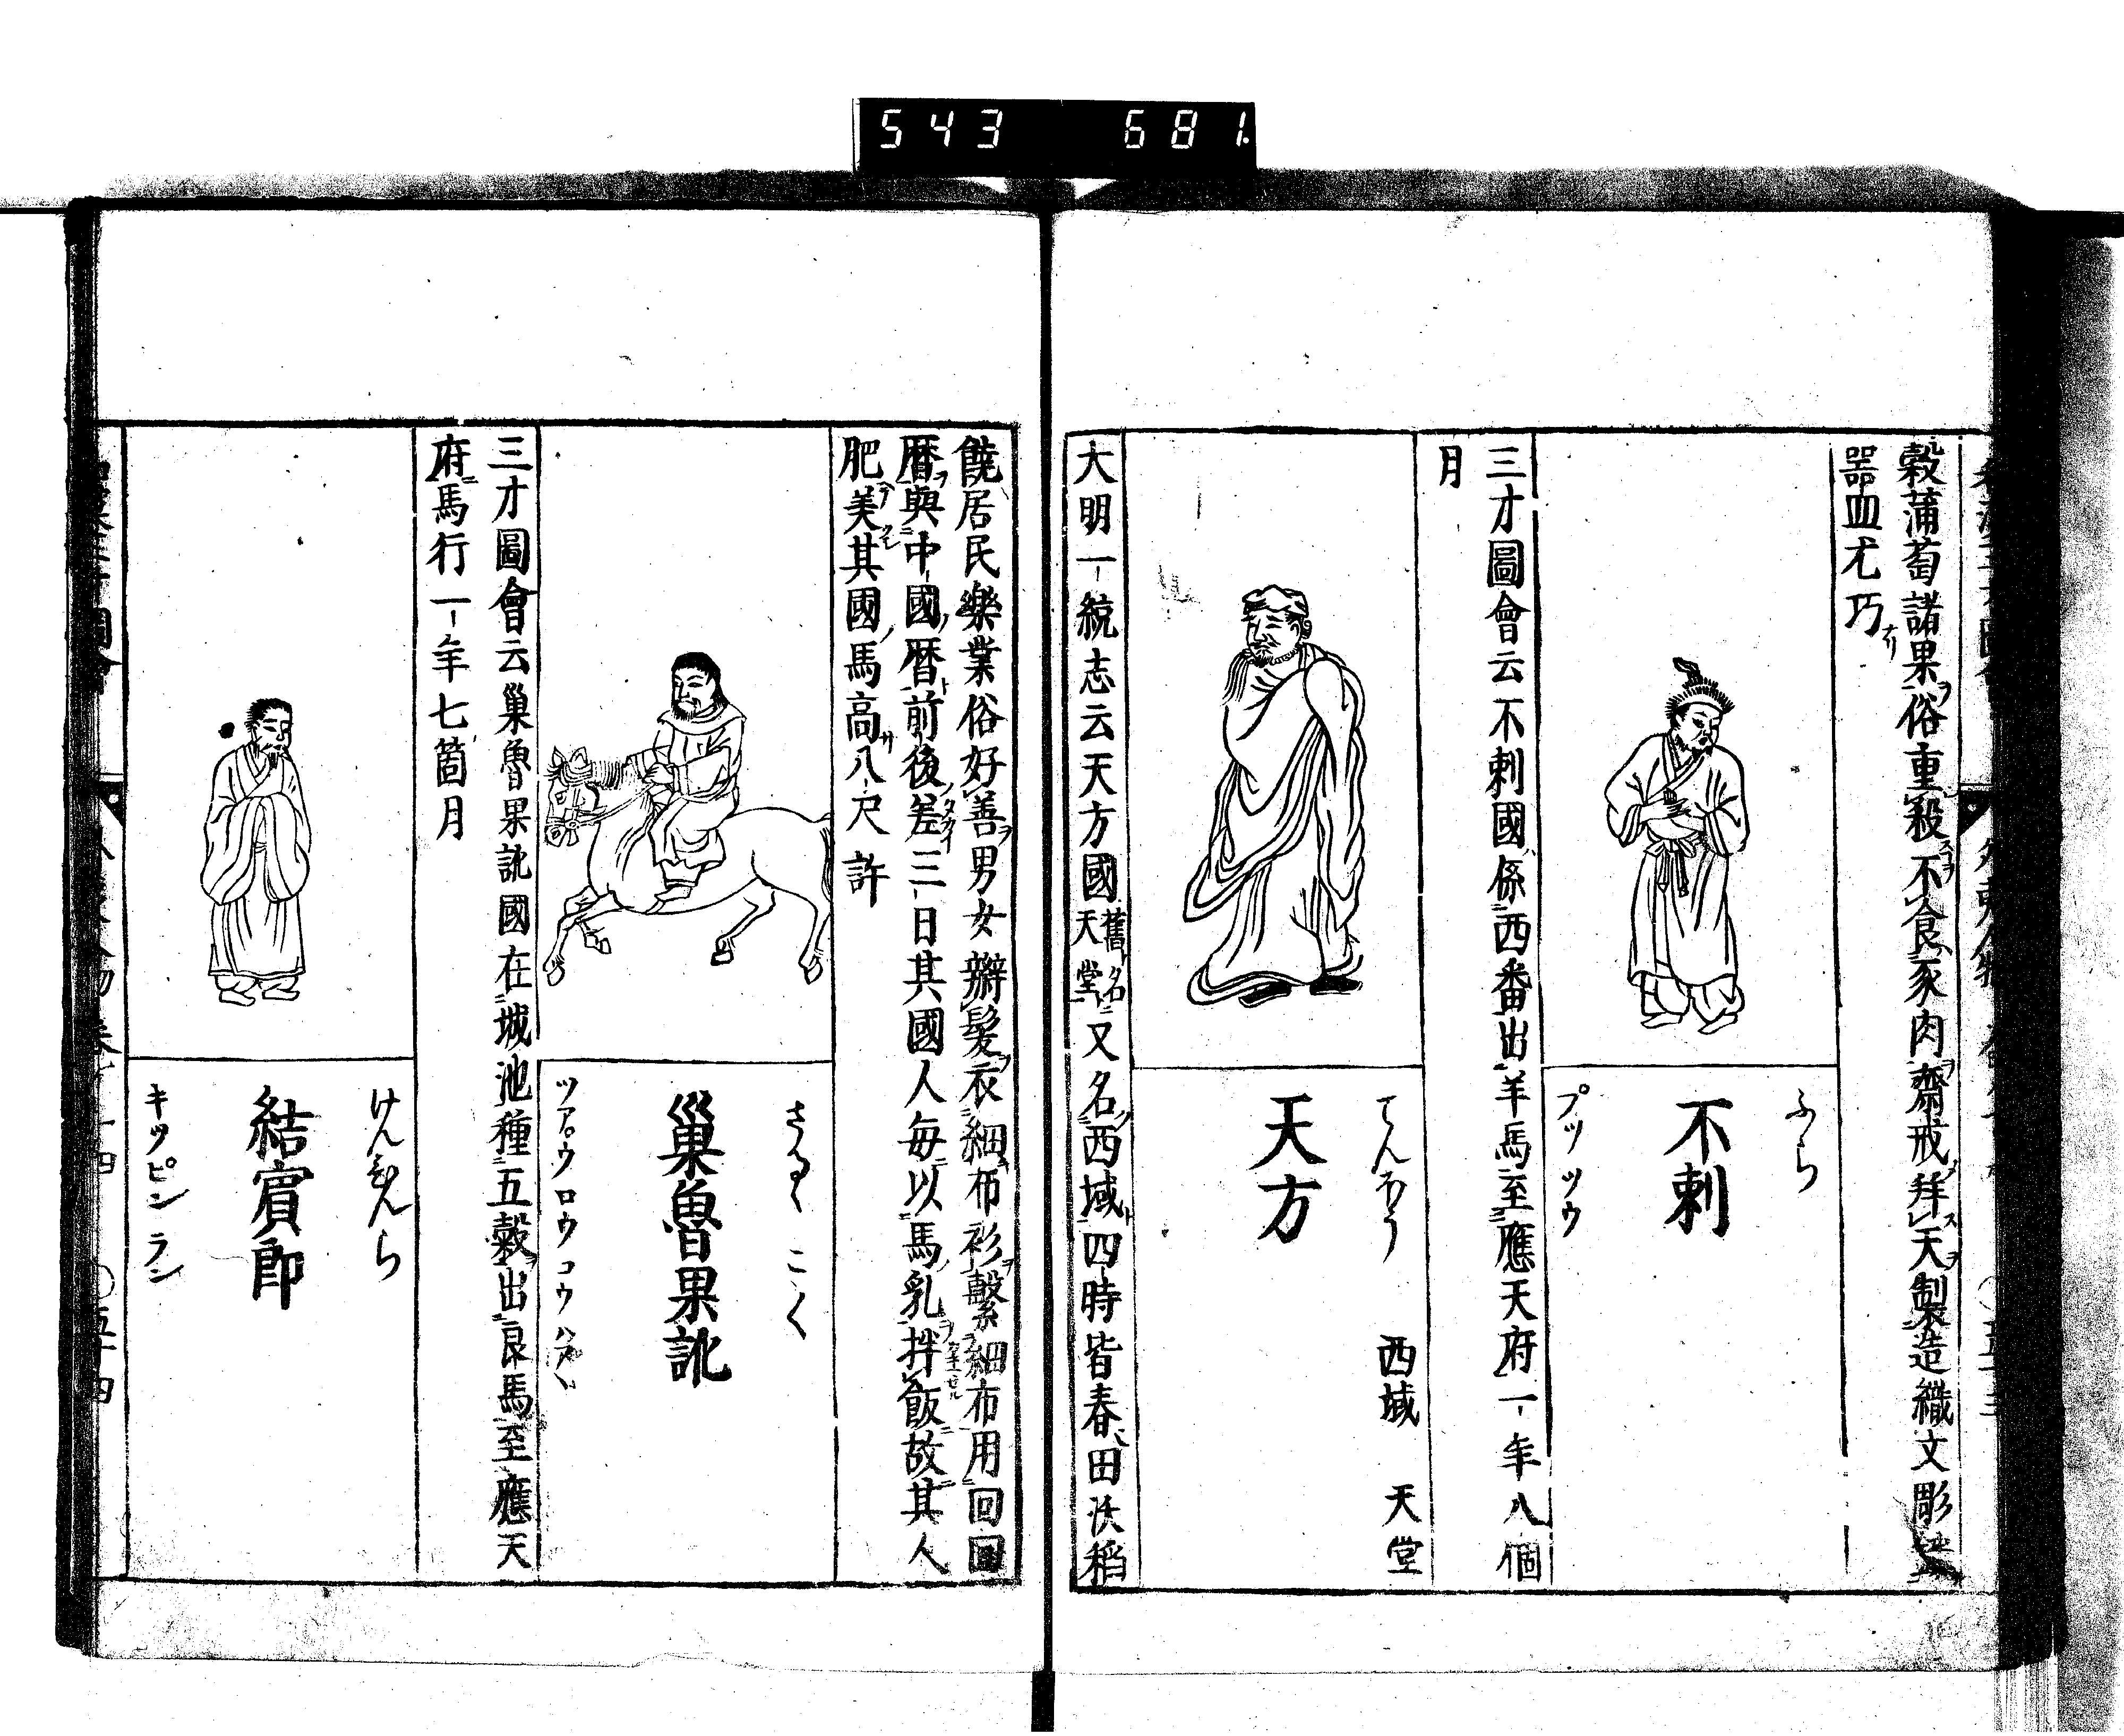 543 681.
穀蒲萄諸果俗重殺不食豕肉齋戒拜天製造織文彫
器皿尤巧
ふら
不剌
プツ ツウ
三才圖會云不剌國係西番出羊馬至應天府一年八個
月
てんはう 西域 天堂
天方
大明一統志云天方國舊名天堂又名西域四時皆春田沃稻
饒居民樂業俗好善男女辮髮衣細布衫繫細布用回回
暦與中國暦前後差三日其國人毎以馬乳拌飯故其人
肥美其國馬高八尺許
巢魯果訛
ツアウ ロウ コウ
三才圖會云巢魯果訛國在城池種五穀出良馬至應天
府馬行一年七箇月
けんひんら
結賓郎
キツ ピン ラン